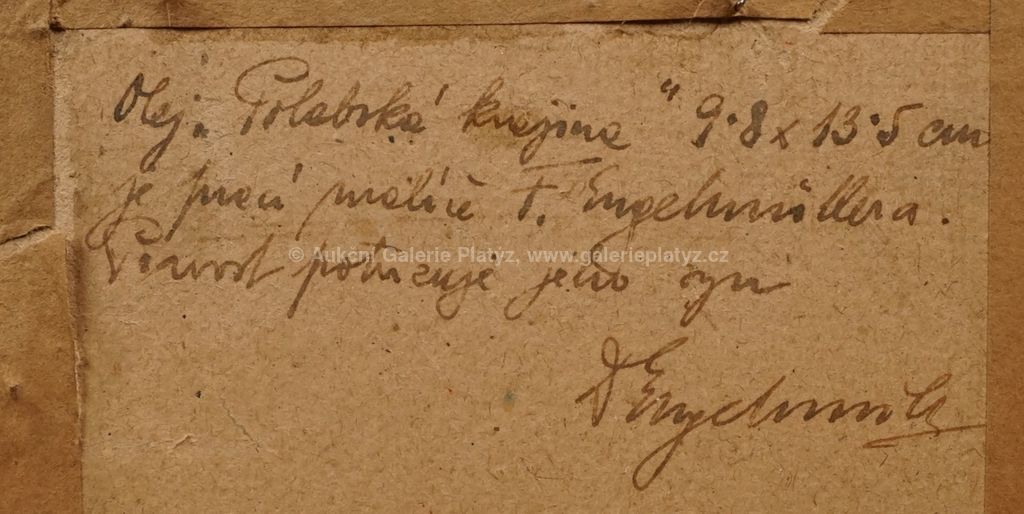 Olej „Polabská krajina" 9·8 x 13·5 cm
je prací malíře F. Engelmüllera.
© Aukcni Galerie Platýz, www.galerieplatyz.cz
Pravost potvrzuje jeho syn
Engelmüller